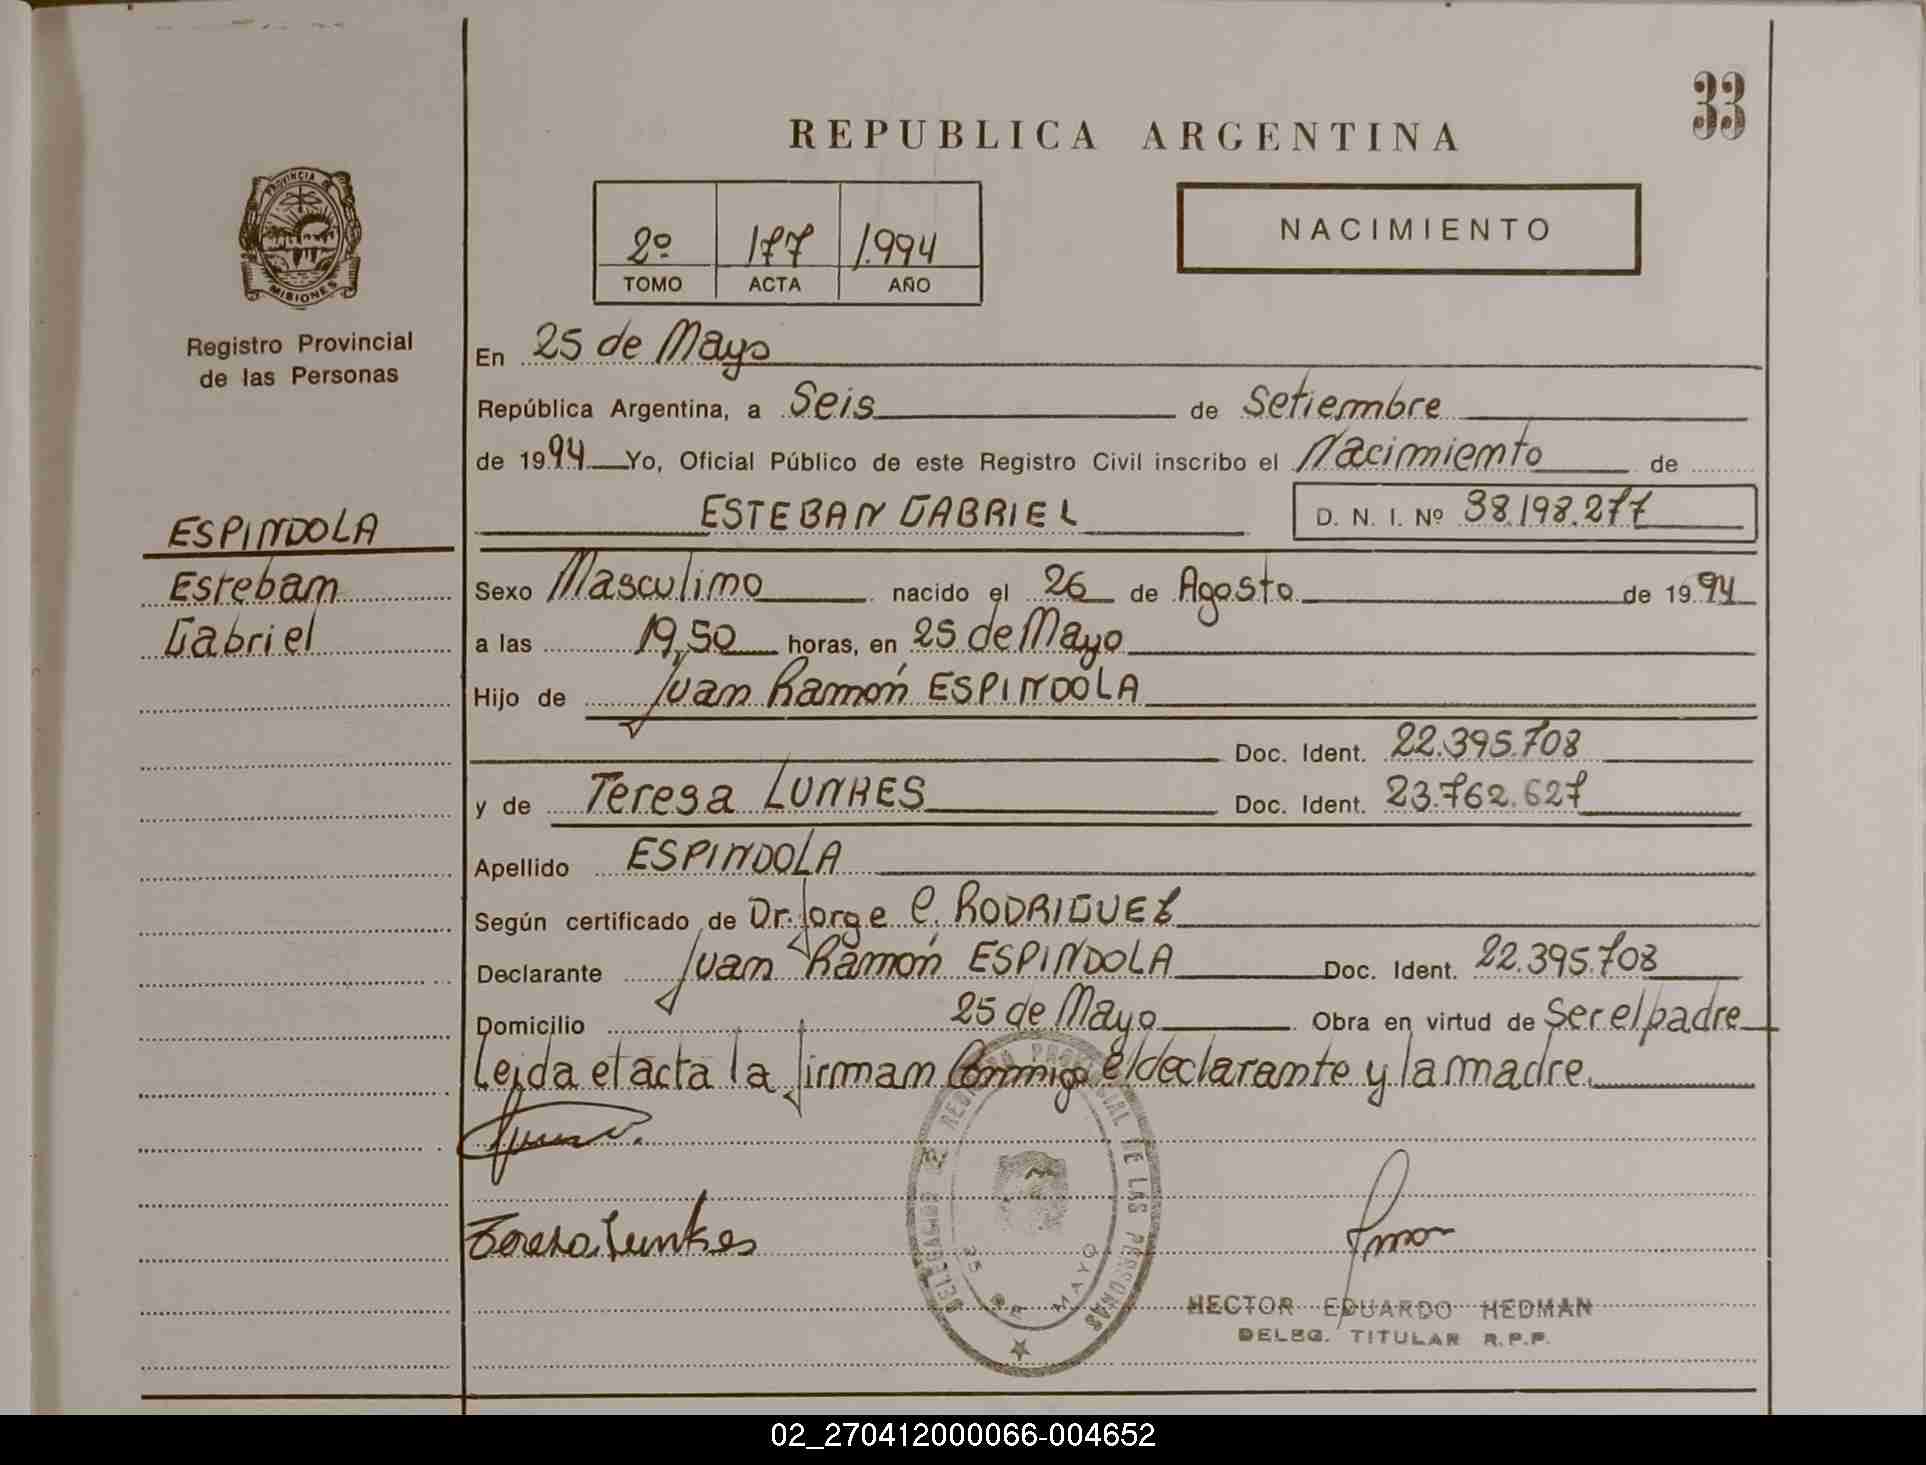 33
REPUBLICA ARGENTINA
PROVINCIA DE
MISIONES
Registro Provincial
de las Personas
2º 177 1.994
TOMO ACTA AÑO
NACIMIENTO
En 25 de Mayo
República Argentina, a Seis de Setiembre
de 1994 Yo, Oficial Público de este Registro Civil inscribo el Nacimiento de
ESTEBAN GABRIEL D. N. I. Nº 38.198.277
ESPINDOLA
Esteban
Gabriel
Sexo Masculino nacido el 26 de Agosto de 1994
a las 19,50 horas, en 25 de Mayo
Hijo de Juan Ramón ESPINDOLA
Doc. Ident. 22.395.708
y de Teresa LUNKES Doc. Ident. 23.762.627
Apellido ESPINDOLA
Según certificado de Dr. Jorge C. RODRIGUEZ
Declarante Juan Ramón ESPINDOLA Doc. Ident. 22.395.708
Domicilio 25 de Mayo Obra en virtud de Ser el padre
Leida el acta la firman Conmigo el declarante y la madre.
Teresa Lunkes
25 DE MAYO
HECTOR EDUARDO HEDMAN
DELEG. TITULAR R.P.P.
02_270412000066-004652